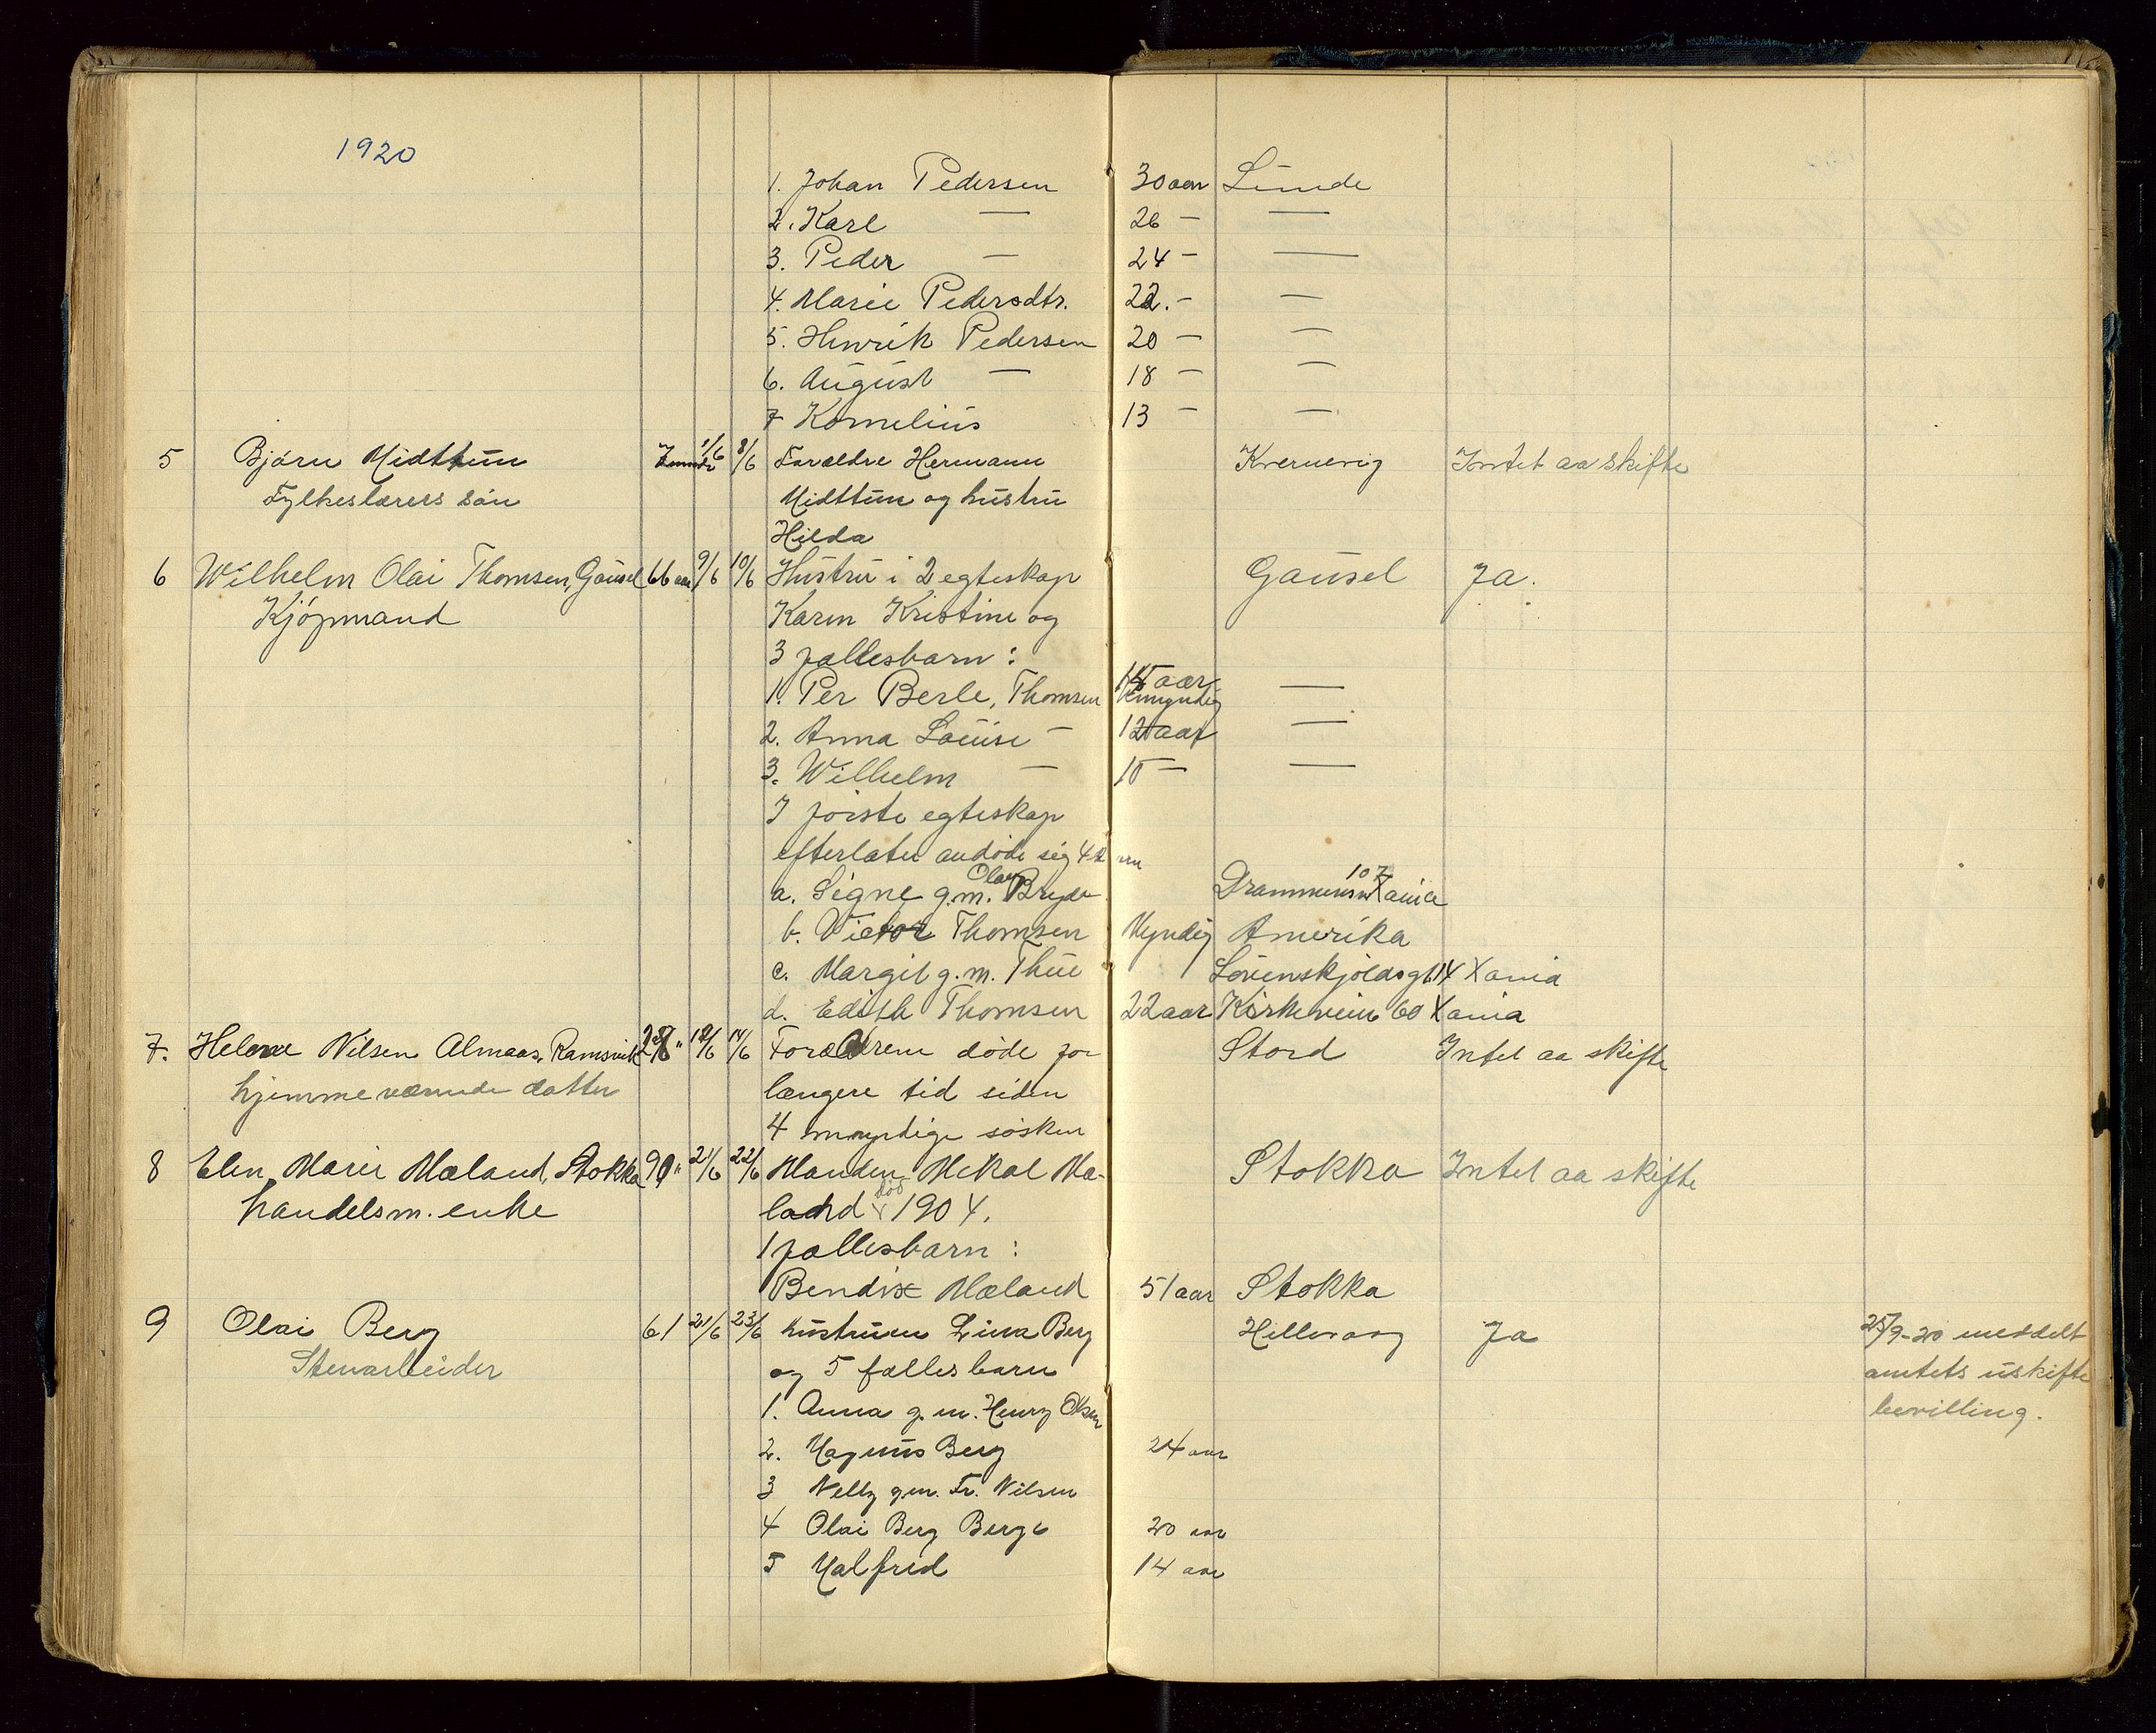 1920
1. Johan Pedersen 30 aar Lunde
2. Karl — 26 — —
3. Peder — 24 — —
4. Marie Pedersdtr. 22. – —
5. Henrik Pedersen 20 — —
6. August — 18 — —
7 Kornelius 13 — —
5 Bjørn Midttun 1/6 8/6 Forældre Hermann Kvernevig Intet aa skifte
Fylkeslærers søn Midttun og hustru
Hilda
6 Wilhelm Olai Thomsen, Gausel 66 aar 9/6 10/6 Hustru i 2 egteskap Gausel Ja.
Kjøpmand Karen Kristine og
3 fællesbarn:
1. Per Berle, Thomsen 15 aar umyndig —
2. Anna Louise — 12 aar —
3. Wilhelm — 10 — —
I første egteskap
efterlater avdøde sig 4 barn
a. Signe g.m. Olav Bryde Drammensv 107 Xania
b. Victor Thomsen Myndig Amerika
c. Margit g.m. Thue Løvenskjoldsgt. 14 Xania
d. Edith Thomsen 22 aar Kirkeveien 60 Xania
7. Helene Nilsen Almaas, Ramsvik 12/6 14/6 Forældrene døde for Stord Intet aa skifte
hjemmeværende datter længere tid siden
4 myndige søsken
8 Elen Marie Mæland, Stokka 90 " 21/6 22/6 Manden Mikal Mæ- Stokka Intet aa skifte
handelsm. enke land død 1904.
1 fællesbarn:
Bendix Mæland 51 aar Stokka
9 Olai Berg 61 21/6 23/6 hustruen Lina Berg Hillevaag Ja 25/9-20 meddelt
Stenarbeider og 5 fællesbarn amtets uskifte
1. Anna g.m. Henry Olsen bevilling.
2. Magnus Berg 24 aar
3 Nelly gm. Fr. Nilsen
4 Olai Berg Berge 20 aar
5 Malfred 14 aar